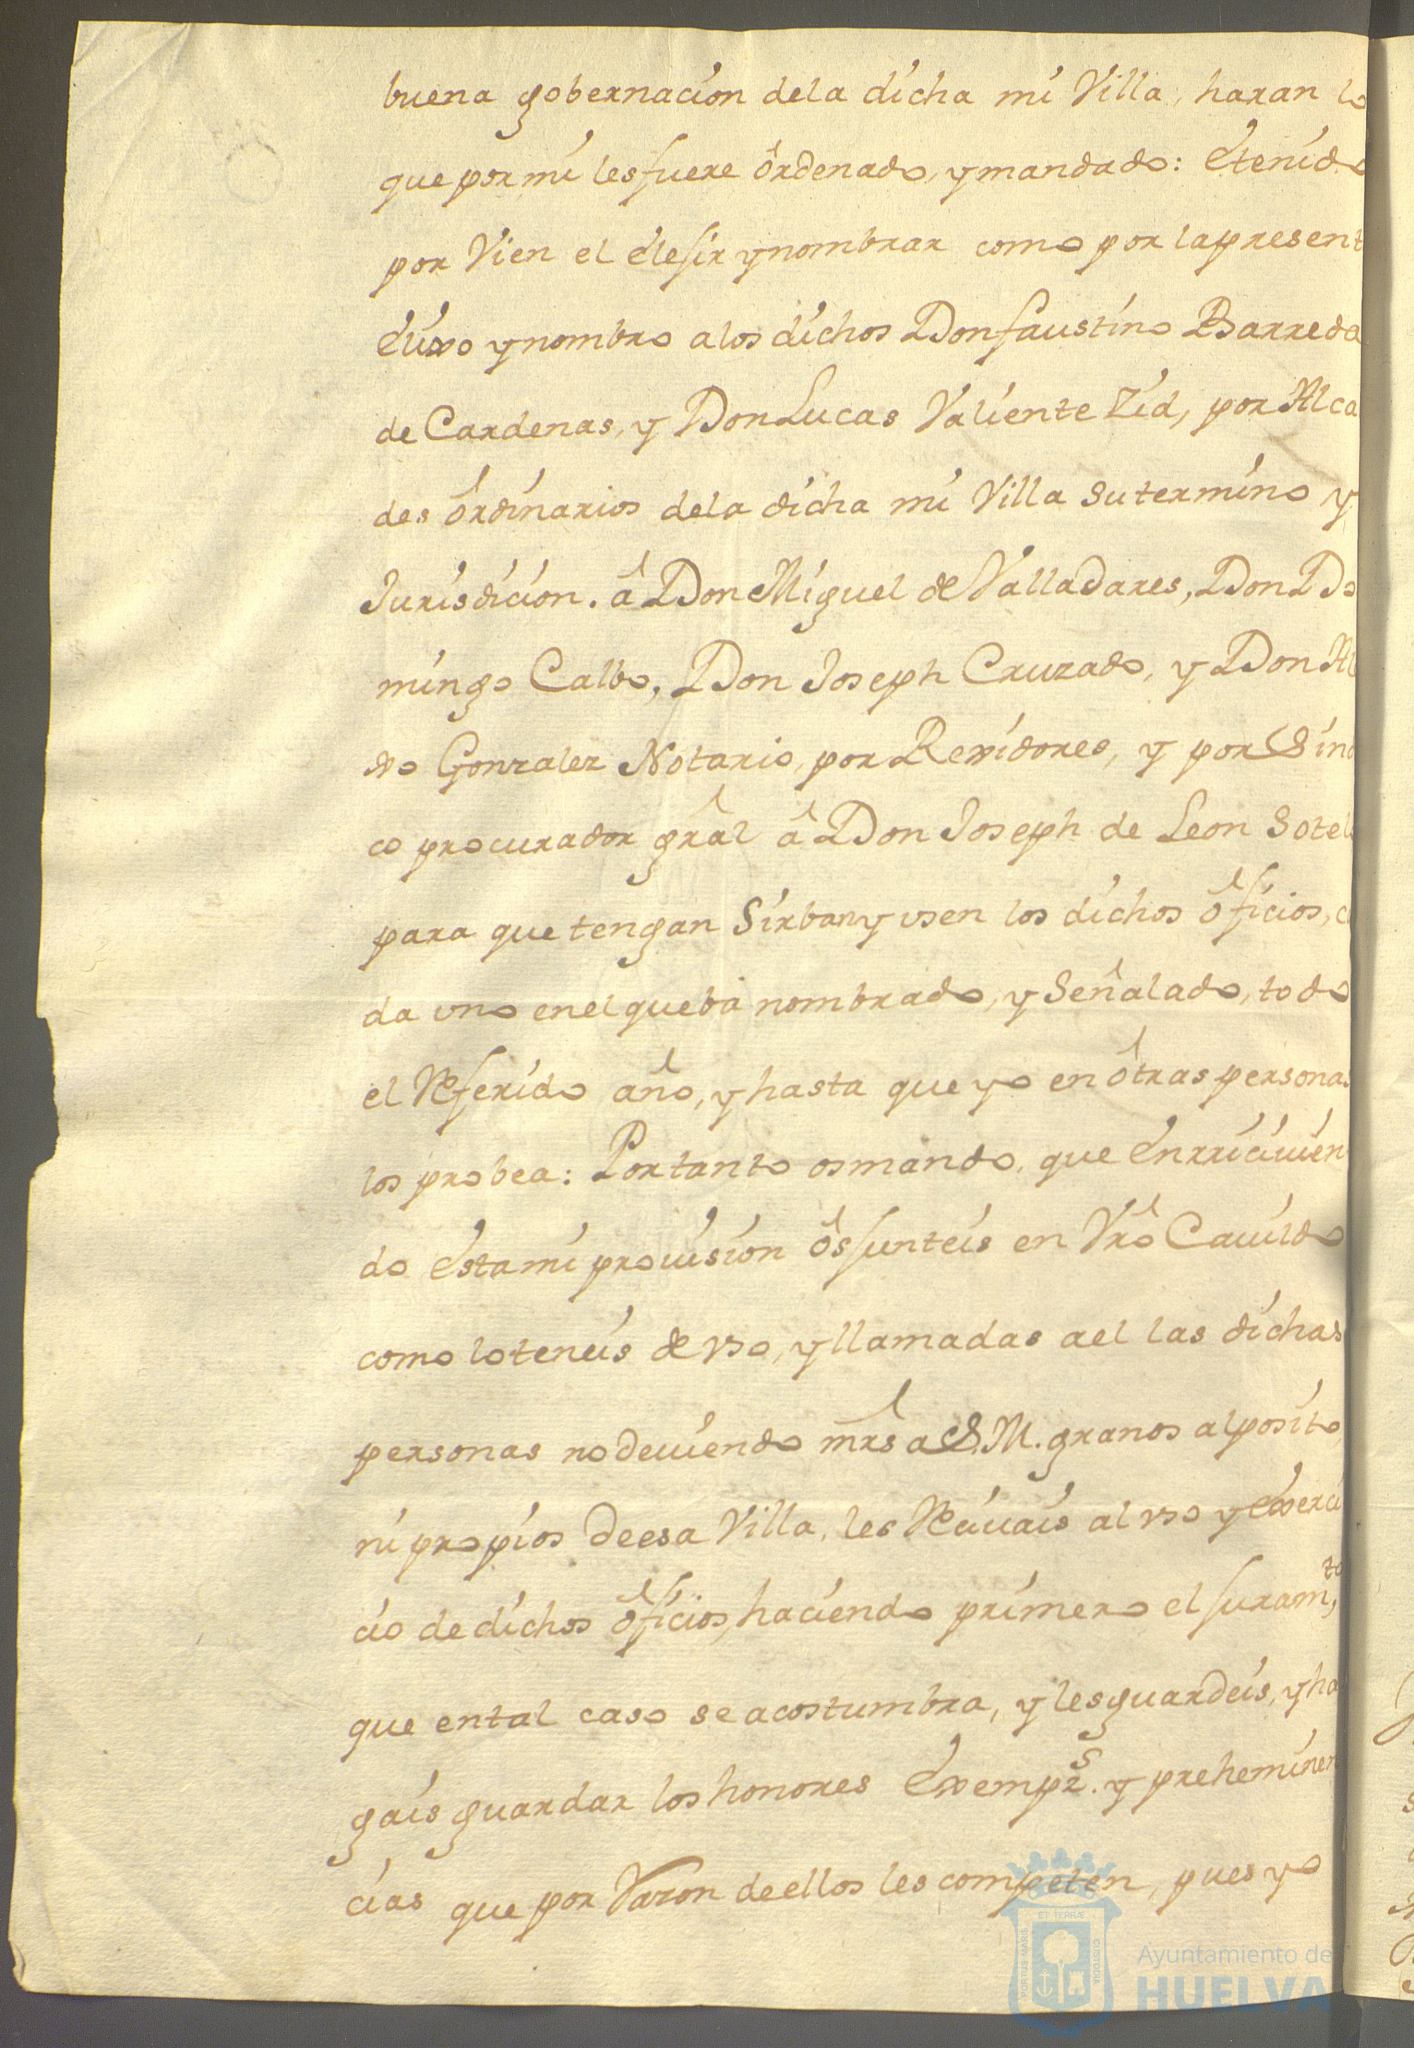 buena gobernacion dela dicha mi Villa, haran lo
que por mi les fuere ôrdenado, y mandado: É tenido
por Vien el elesir y nombrar como por la present
Elixo y nombro a los dichos Don faustino Barreda
de Cardenas, y Don Lucas Valiente Zid, por Alca
des ôrdinarios dela dicha mi Villa su termino y
Jurisdicion. â Don Miguel de Valladares, Don Do
mingo Calbo, Don Joseph Cruzado, y Don Al
Gonzalez Notario, por Rexidores, y por Sind
co procurador grâl â Don Joseph de Leon Sotel
para que tengan Sirban y usen los dichos ôficios, ca
da uno en el que bà nombrado, y Señalado, todo
el Referido año, y hasta que yo en ôtras personas
los probea: Por tanto os mando, que En rriciuien
do Ésta mi prouision ôs junteis en Vrô Cauildo
como lo teneis de vso, y llamadas a el las dichas
personas no deuiendo mrs̃ a S. M. granos al posito,
ni propios de esa Villa, les Reciuais al vso y Exerci
cio de dichos ôficios, haciendo primero el juramto,
que en tal caso se acostumbra, y les guardeis, y ha
gais guardar los honores Exempzs. y preheminen
cias que por Razon de ellos les competen, pues yo
PORTUS MARIS
ET TERRÆ
CUSTODIA
Ayuntamiento de
HUELVA